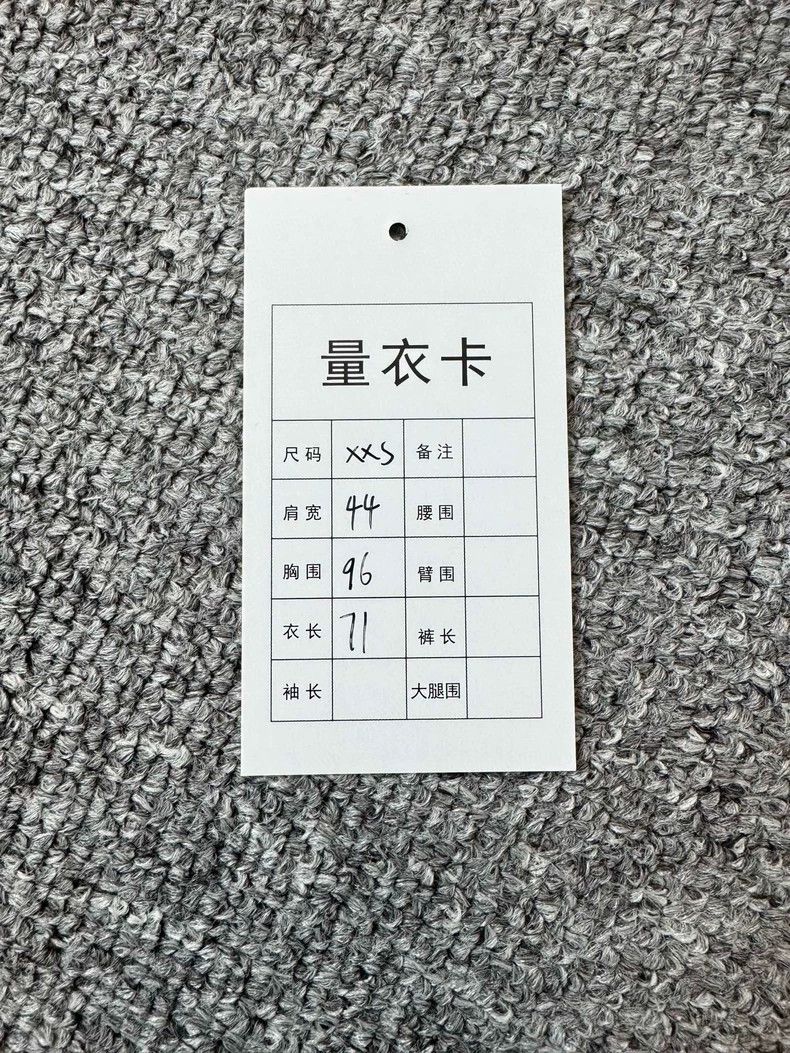 量衣卡
尺码 XXS 备注
肩宽 44 腰围
胸围 96 臂围
衣长 71 裤长
袖长 大腿围